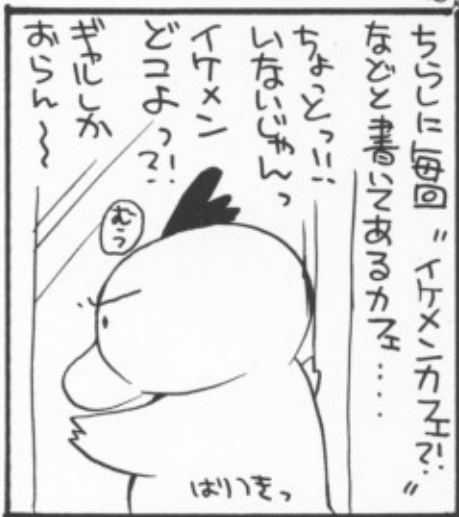 ちらしに毎回〝イケメンカフェ?!〟
などと書いてあるカフェ‥‥
ちょっとっ!!
いないじゃんっ
イケメン
どコよっ?!
ギャルしか
おらん〜
むうっ
はりつきっ